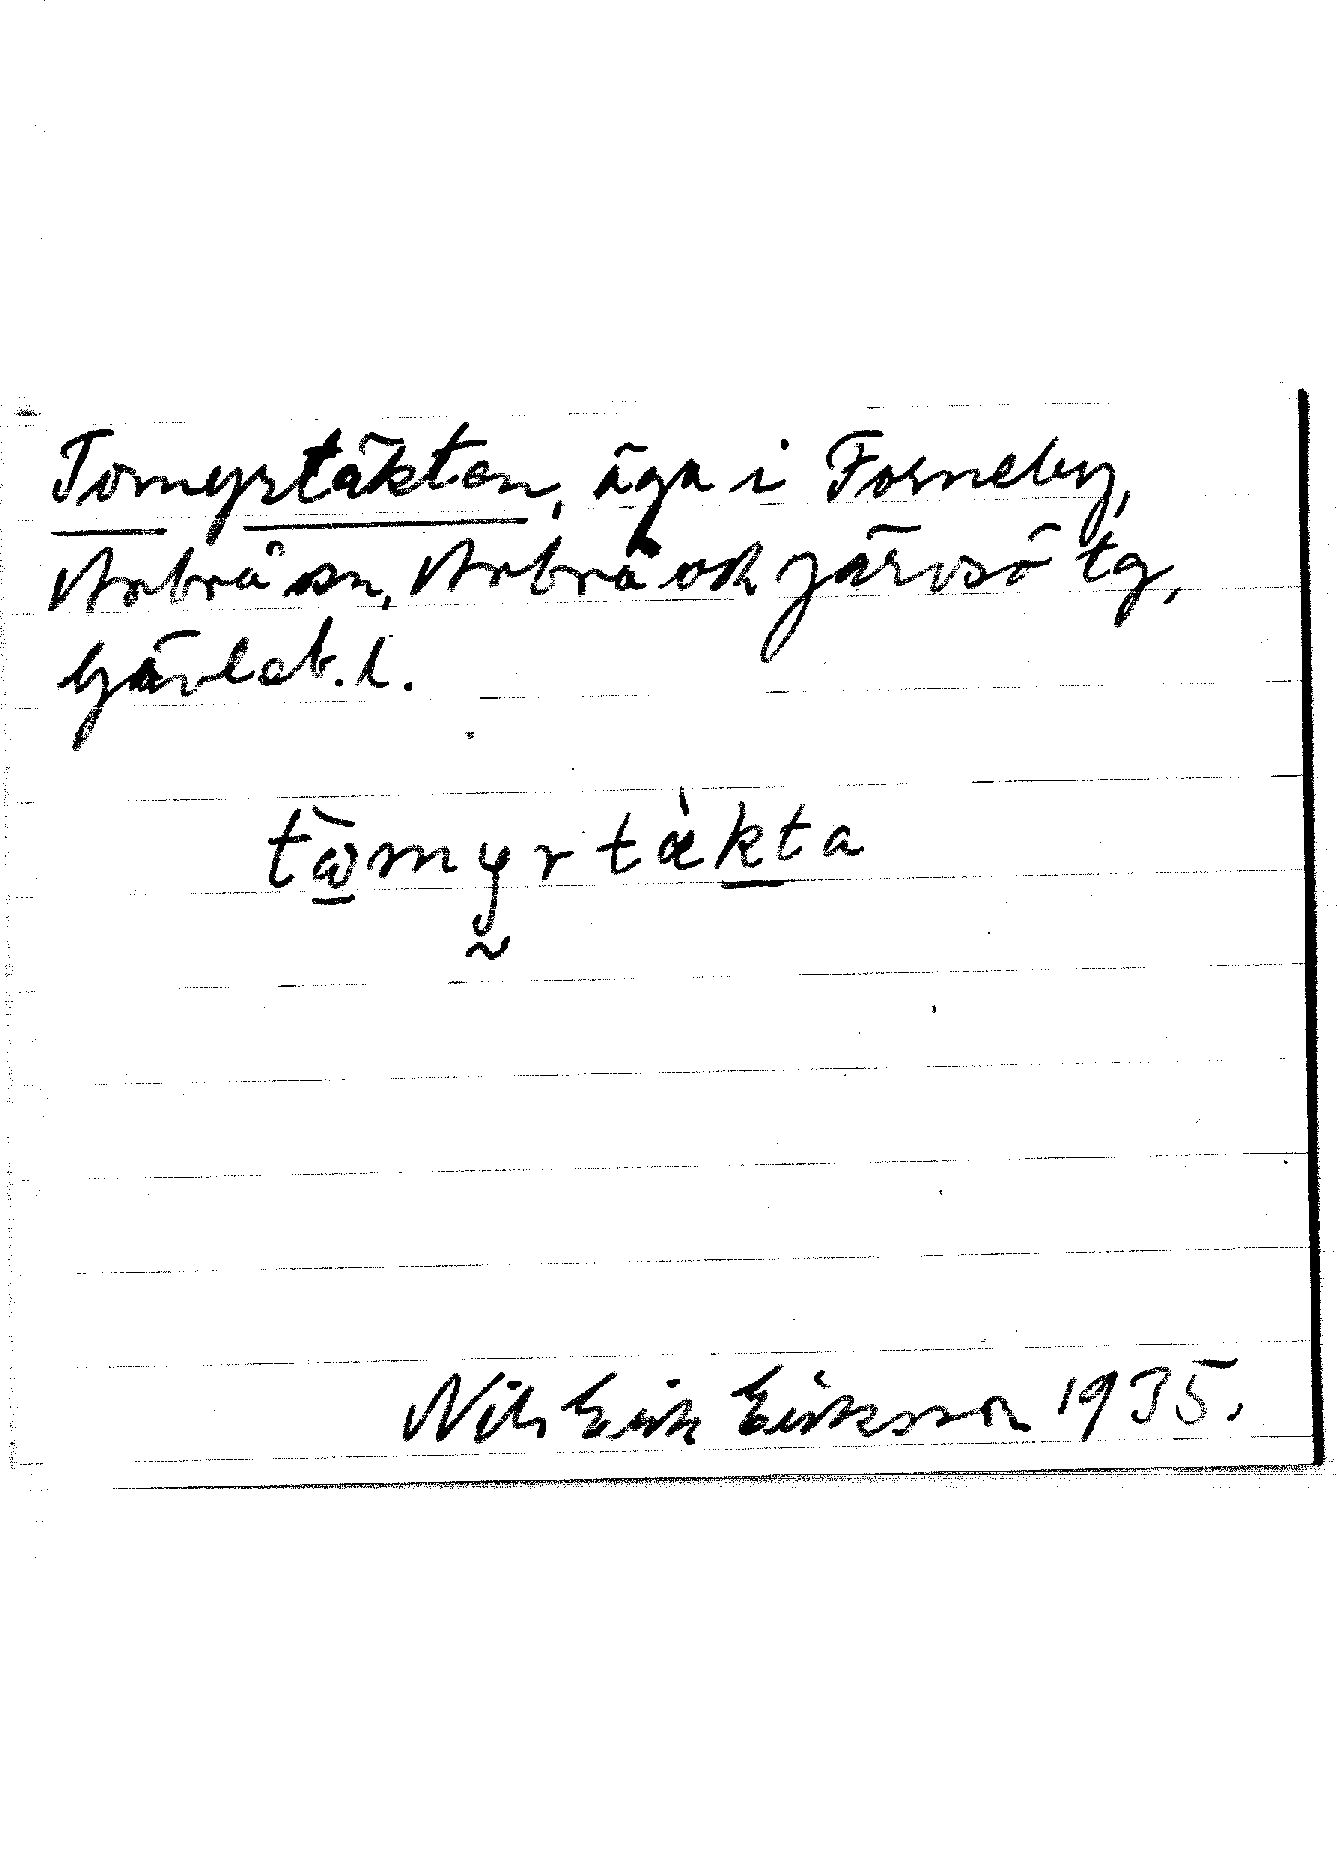 Tomyrtäkten, äga i Forneby,
Arbrå sn, Arbrå och Järvsö tg,
Gävleb. l.
tωmyrtækta
Nils Erik Eriksson 1935.